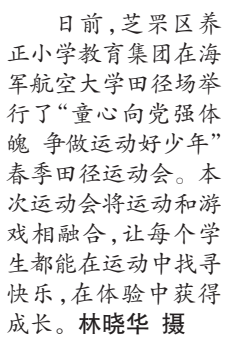 日前，芝罘区养
正小学教育集团在海
军航空大学田径场举
行了“童心向党强体
魄 争做运动好少年”
春季田径运动会。本
次运动会将运动和游
戏相融合，让每个学
生都能在运动中找寻
快乐，在体验中获得
成长。林晓华 摄